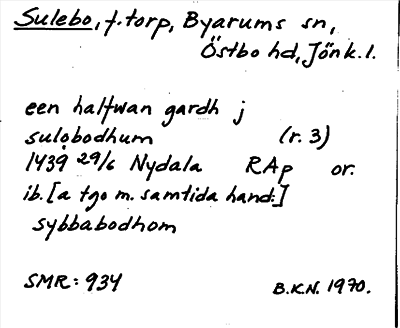 Sulebo, f.torp, Byarums sn,
Östbo hd, Jönk.l.
een halfwan gardh j
sulobodhum (r. 3)
1439 29/6 Nydala RAp or.
ib. [a tgo m. samtida hand:]
sybbabodhom
SMR: 934 B.K.N. 1970.